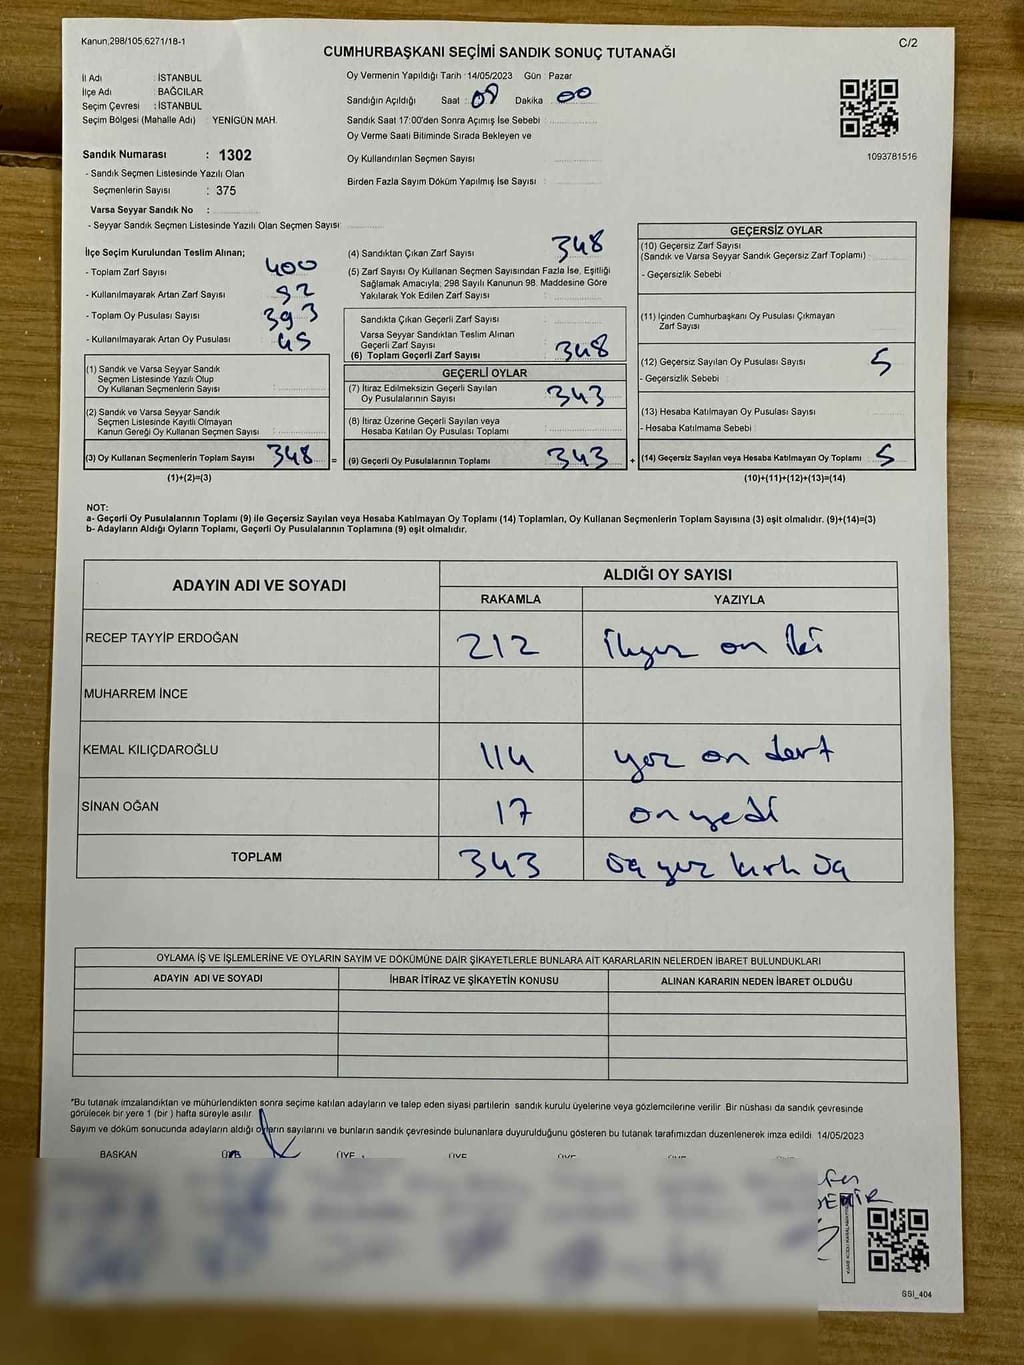 Kanun,298/105,6271/18-1
C/2
CUMHURBAŞKANI SEÇİMİ SANDIK SONUÇ TUTANAĞI
İl Adı : İSTANBUL
İlçe Adı : BAĞCILAR
Seçim Çevresi : İSTANBUL
Seçim Bölgesi (Mahalle Adı) YENİGÜN MAH.
Oy Vermenin Yapıldığı Tarih : 14/05/2023 Gün : Pazar
Sandığın Açıldığı Saat : 08 Dakika : 00
Sandık Saat 17:00'den Sonra Açımış İse Sebebi :
Oy Verme Saati Bitiminde Sırada Bekleyen ve
Oy Kullandırılan Seçmen Sayısı
Birden Fazla Sayım Döküm Yapılmış İse Sayısı :
1093781516
Sandık Numarası : 1302
- Sandık Seçmen Listesinde Yazılı Olan
Seçmenlerin Sayısı : 375
Varsa Seyyar Sandık No :
- Seyyar Sandık Seçmen Listesinde Yazılı Olan Seçmen Sayısı:
İlçe Seçim Kurulundan Teslim Alınan;
- Toplam Zarf Sayısı : 400
- Kullanılmayarak Artan Zarf Sayısı : 52
- Toplam Oy Pusulası Sayısı : 393
- Kullanılmayarak Artan Oy Pusulası : 45
(1) Sandık ve Varsa Seyyar Sandık
Seçmen Listesinde Yazılı Olup
Oy Kullanan Seçmenlerin Sayısı :
(2) Sandık ve Varsa Seyyar Sandık
Seçmen Listesinde Kayıtlı Olmayan
Kanun Gereği Oy Kullanan Seçmen Sayısı :
(3) Oy Kullanan Seçmenlerin Toplam Sayısı : 348 =
(1)+(2)=(3)
(4) Sandıktan Çıkan Zarf Sayısı : 348
(5) Zarf Sayısı Oy Kullanan Seçmen Sayısından Fazla İse, Eşitliği
Sağlamak Amacıyla, 298 Sayılı Kanunun 98. Maddesine Göre
Yakılarak Yok Edilen Zarf Sayısı :
Sandıkta Çıkan Geçerli Zarf Sayısı :
Varsa Seyyar Sandıktan Teslim Alınan
Geçerli Zarf Sayısı
(6) Toplam Geçerli Zarf Sayısı : 348
GEÇERLİ OYLAR
(7) İtiraz Edilmeksizin Geçerli Sayılan
Oy Pusulalarının Sayısı : 343
(8) İtiraz Üzerine Geçerli Sayılan veya
Hesaba Katılan Oy Pusulası Toplamı :
(9) Geçerli Oy Pusulalarının Toplamı : 343 +
GEÇERSİZ OYLAR
(10) Geçersiz Zarf Sayısı
(Sandık ve Varsa Seyyar Sandık Geçersiz Zarf Toplamı) :
- Geçersizlik Sebebi :
(11) İçinden Cumhurbaşkanı Oy Pusulası Çıkmayan
Zarf Sayısı
(12) Geçersiz Sayılan Oy Pusulası Sayısı : 5
- Geçersizlik Sebebi :
(13) Hesaba Katılmayan Oy Pusulası Sayısı :
- Hesaba Katılmama Sebebi :
(14) Geçersiz Sayılan veya Hesaba Katılmayan Oy Toplamı : 5
(10)+(11)+(12)+(13)=(14)
NOT:
a- Geçerli Oy Pusulalarının Toplamı (9) ile Geçersiz Sayılan veya Hesaba Katılmayan Oy Toplamı (14) Toplamları, Oy Kullanan Seçmenlerin Toplam Sayısına (3) eşit olmalıdır. (9)+(14)=(3)
b- Adayların Aldığı Oyların Toplamı, Geçerli Oy Pusulalarının Toplamına (9) eşit olmalıdır.
ADAYIN ADI VE SOYADI
ALDIĞI OY SAYISI
RAKAMLA YAZIYLA
RECEP TAYYİP ERDOĞAN 212 ikiyüz on iki
MUHARREM İNCE
KEMAL KILIÇDAROĞLU 114 yüz on dört
SİNAN OĞAN 17 on yedi
TOPLAM 343 üç yüz kırk üç
OYLAMA İŞ VE İŞLEMLERİNE VE OYLARIN SAYIM VE DÖKÜMÜNE DAİR ŞİKAYETLERLE BUNLARA AİT KARARLARIN NELERDEN İBARET BULUNDUKLARI
ADAYIN ADI VE SOYADI İHBAR İTİRAZ VE ŞİKAYETİN KONUSU ALINAN KARARIN NEDEN İBARET OLDUĞU
*Bu tutanak imzalandıktan ve mühürlendikten sonra seçime katılan adayların ve talep eden siyasi partilerin sandık kurulu üyelerine veya gözlemcilerine verilir. Bir nüshası da sandık çevresinde
görülecek bir yere 1 (bir ) hafta süreyle asılır.
Sayım ve döküm sonucunda adayların aldığı oyların sayılarını ve bunların sandık çevresinde bulunanlara duyurulduğunu gösteren bu tutanak tarafımızdan düzenlenerek imza edildi 14/05/2023
BAŞKAN ÜYE ÜYE ÜYE ÜYE ÜYE ÜYE
SSİ_404